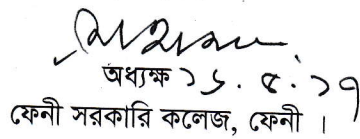 অধ্যক্ষ ১৬.৫.১৭
ফেনী সরকারি কলেজ, ফেনী।